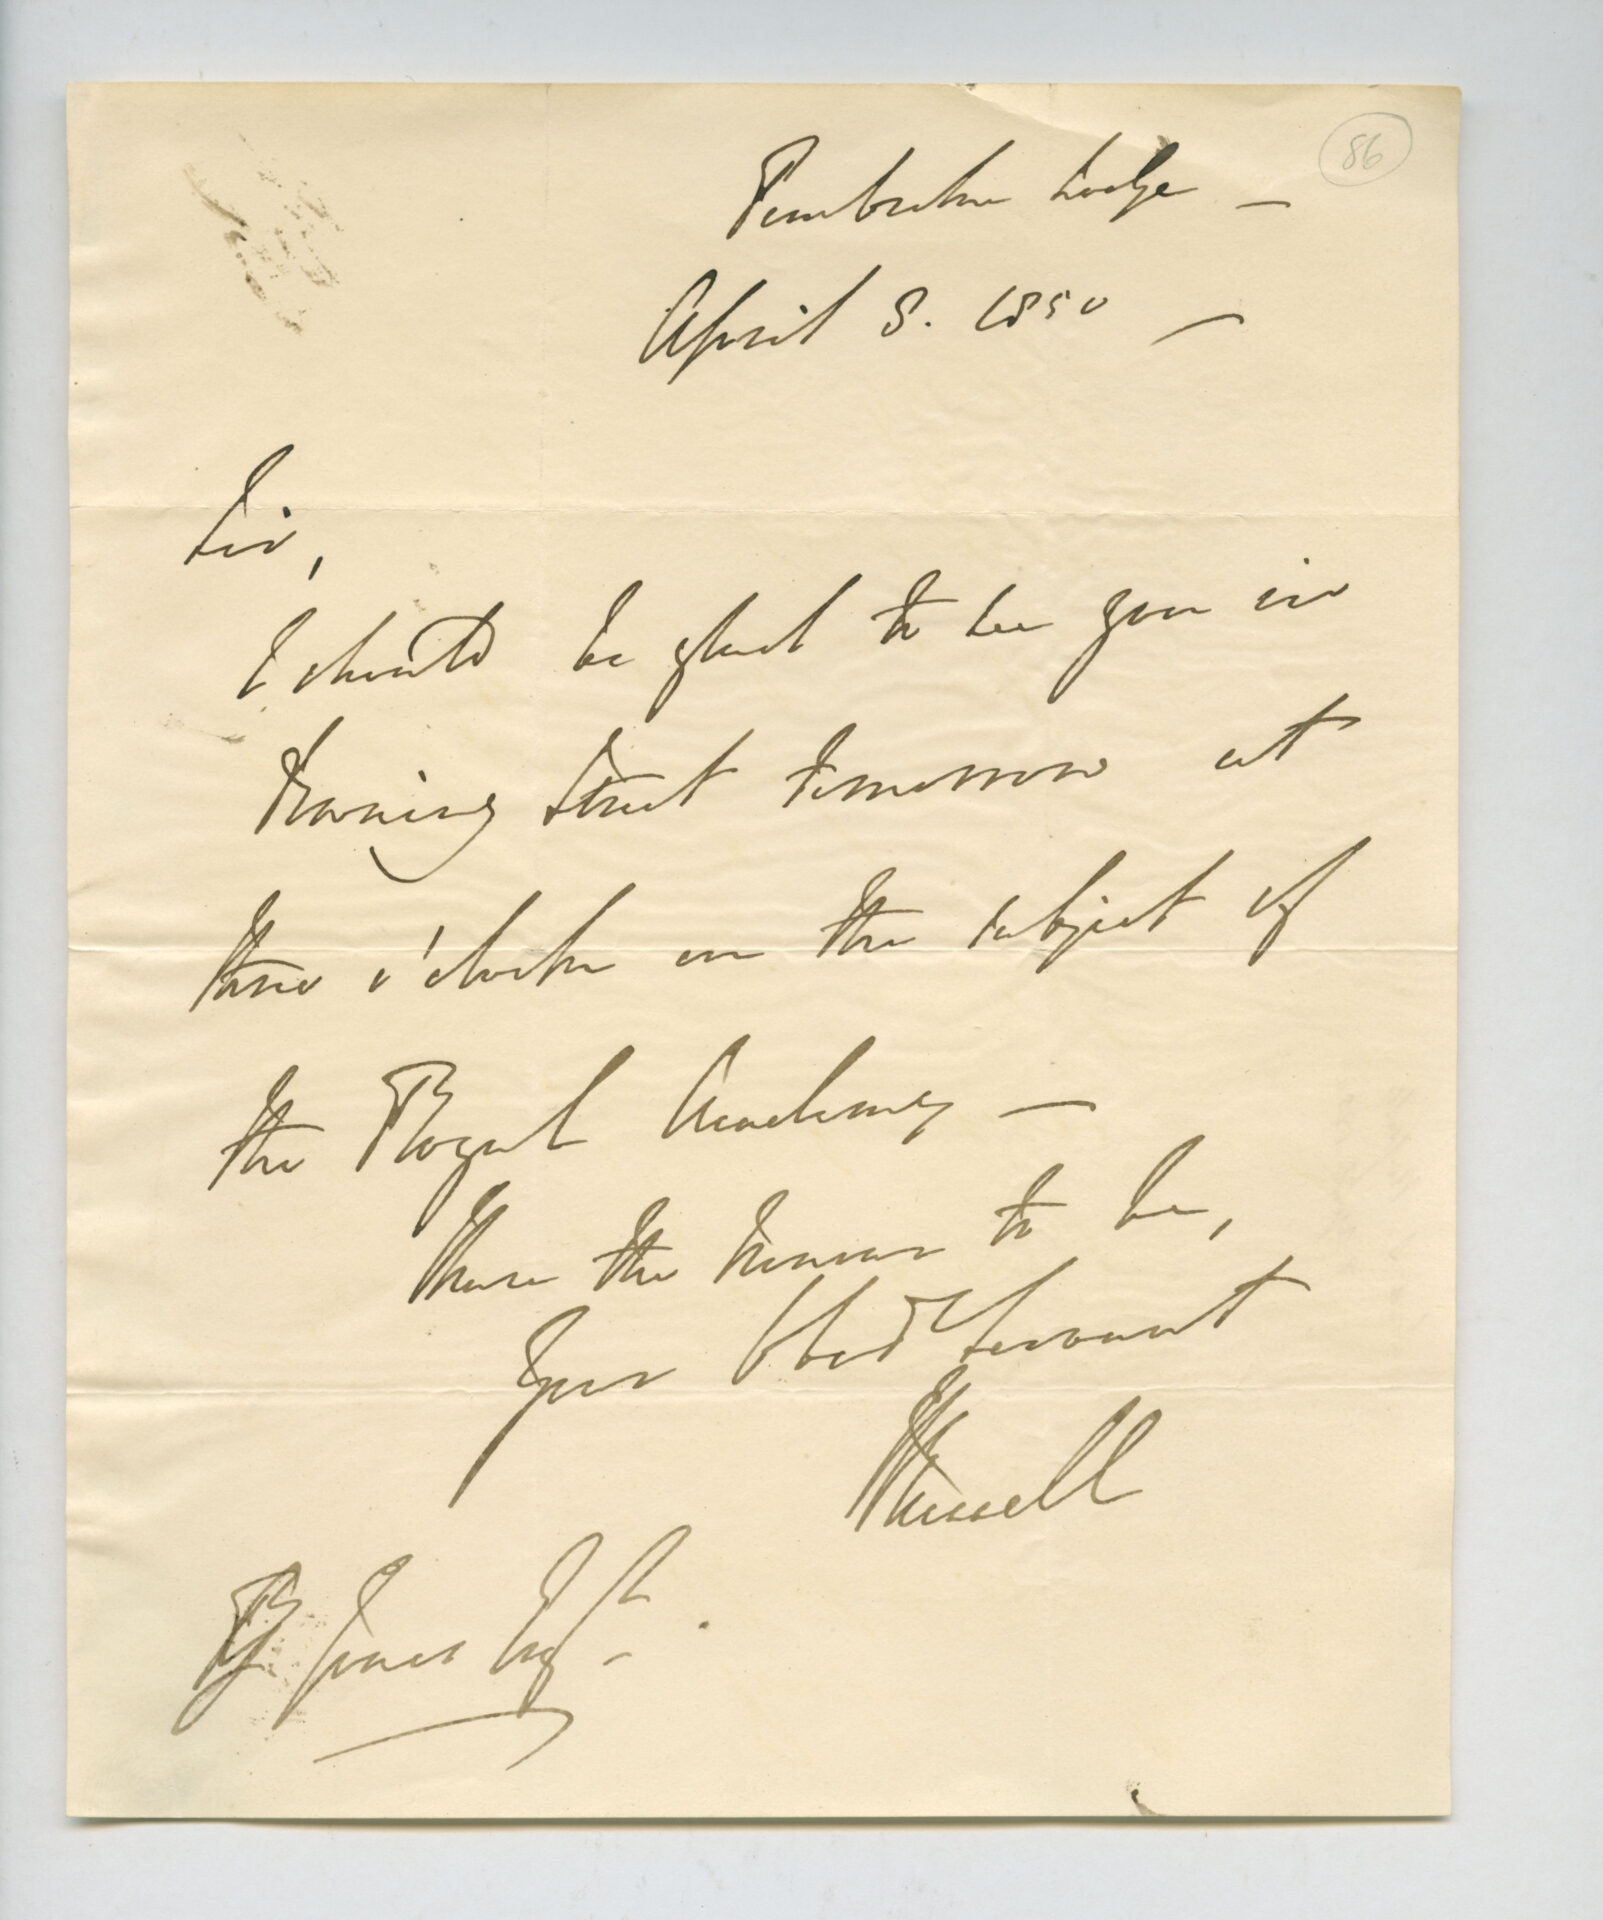 86
Pembroke Lodge —
April 8. 1850 —
Sir,
I should be glad to see you in
Downing Street tomorrow at
three o'clock on the subject of
the Royal Academy —
I have the honour to be,
Your Obed^t Servant
J Russell
Jones Esq^r.